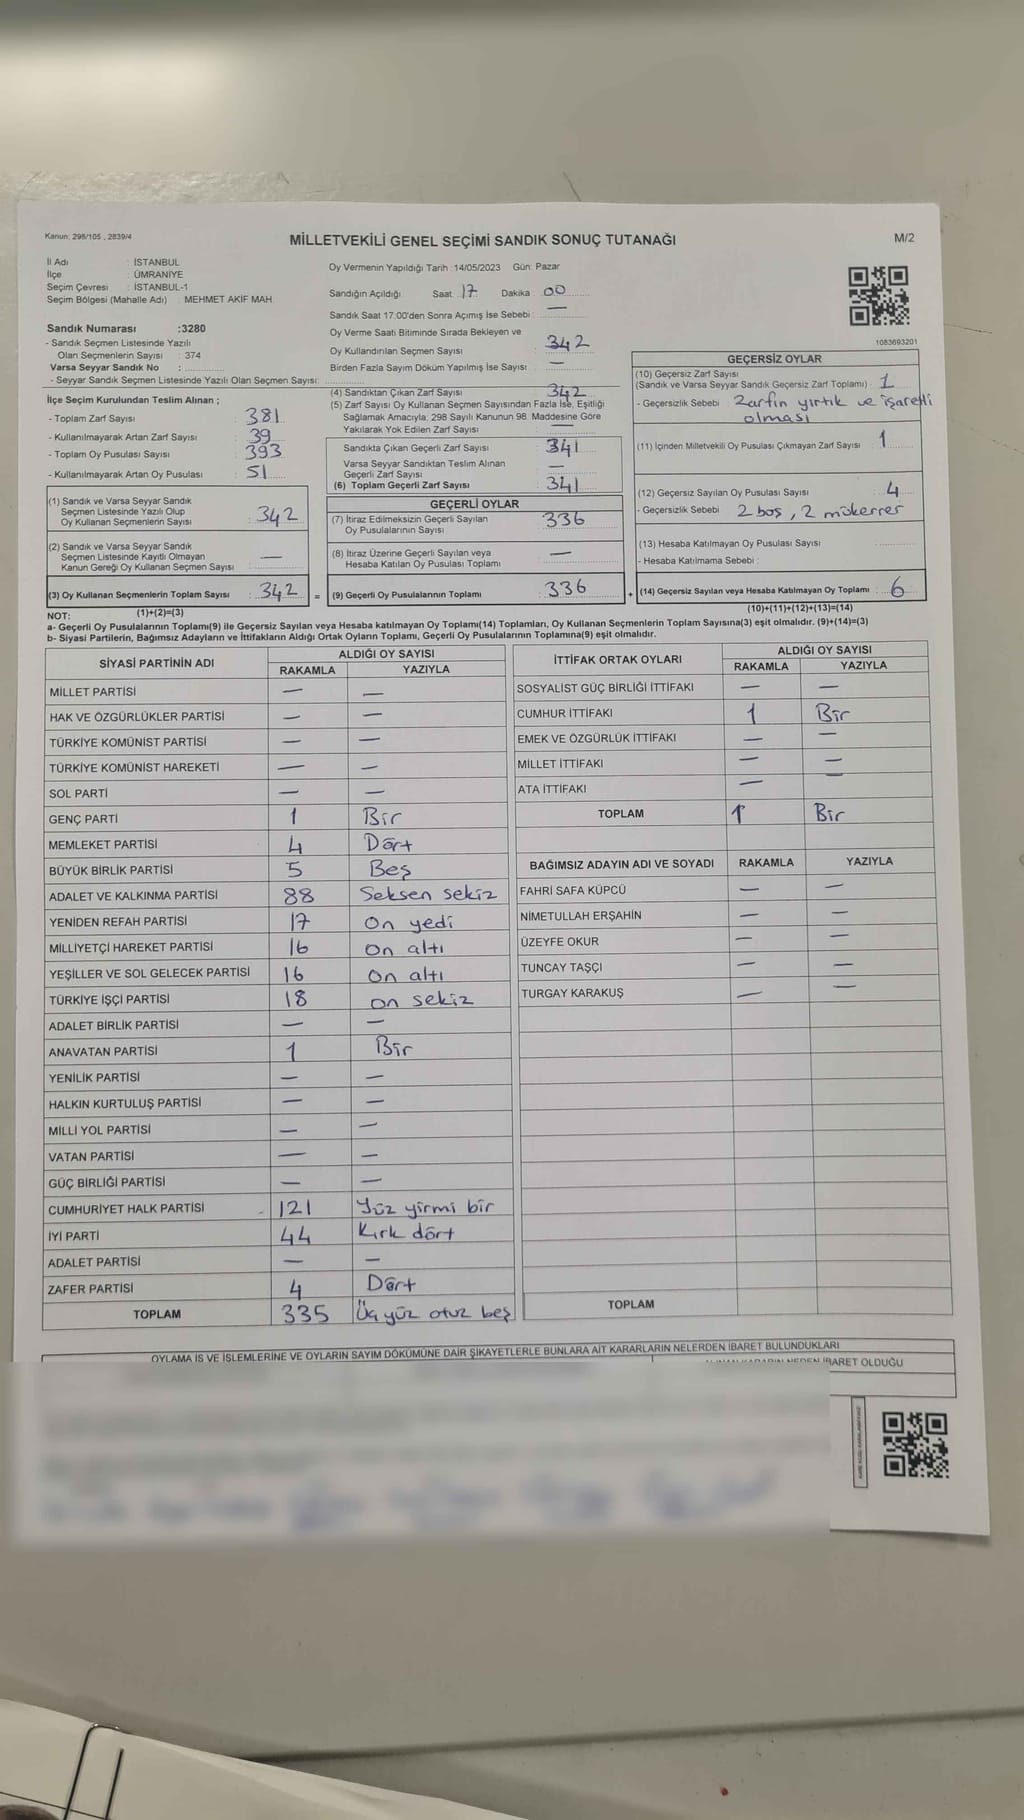 Kanun: 298/105 , 2839/4
MİLLETVEKİLİ GENEL SEÇİMİ SANDIK SONUÇ TUTANAĞI
M/2
İl Adı : İSTANBUL
İlçe : ÜMRANİYE
Seçim Çevresi : İSTANBUL-1
Seçim Bölgesi (Mahalle Adı) : MEHMET AKİF MAH.
Sandık Numarası :3280
- Sandık Seçmen Listesinde Yazılı
Olan Seçmenlerin Sayısı : 374
Varsa Seyyar Sandık No :
- Seyyar Sandık Seçmen Listesinde Yazılı Olan Seçmen Sayısı:
Oy Vermenin Yapıldığı Tarih : 14/05/2023 Gün: Pazar
Sandığın Açıldığı Saat: 17 Dakika : 00
Sandık Saat 17:00'den Sonra Açımış İse Sebebi : —
Oy Verme Saati Bitiminde Sırada Bekleyen ve
Oy Kullandırılan Seçmen Sayısı : 342
Birden Fazla Sayım Döküm Yapılmış İse Sayısı : —
1083693201
İlçe Seçim Kurulundan Teslim Alınan ;
- Toplam Zarf Sayısı : 381
- Kullanılmayarak Artan Zarf Sayısı : 39
- Toplam Oy Pusulası Sayısı : 393
- Kullanılmayarak Artan Oy Pusulası : 51
(1) Sandık ve Varsa Seyyar Sandık
Seçmen Listesinde Yazılı Olup
Oy Kullanan Seçmenlerin Sayısı : 342
(2) Sandık ve Varsa Seyyar Sandık
Seçmen Listesinde Kayıtlı Olmayan
Kanun Gereği Oy Kullanan Seçmen Sayısı : —
(3) Oy Kullanan Seçmenlerin Toplam Sayısı : 342 =
(1)+(2)=(3)
(4) Sandıktan Çıkan Zarf Sayısı : 342
(5) Zarf Sayısı Oy Kullanan Seçmen Sayısından Fazla İse, Eşitliği
Sağlamak Amacıyla, 298 Sayılı Kanunun 98. Maddesine Göre
Yakılarak Yok Edilen Zarf Sayısı : —
Sandıkta Çıkan Geçerli Zarf Sayısı : 341
Varsa Seyyar Sandıktan Teslim Alınan
Geçerli Zarf Sayısı : —
(6) Toplam Geçerli Zarf Sayısı : 341
GEÇERLİ OYLAR
(7) İtiraz Edilmeksizin Geçerli Sayılan
Oy Pusulalarının Sayısı : 336
(8) İtiraz Üzerine Geçerli Sayılan veya
Hesaba Katılan Oy Pusulası Toplamı : —
(9) Geçerli Oy Pusulalarının Toplamı : 336 +
GEÇERSİZ OYLAR
(10) Geçersiz Zarf Sayısı
(Sandık ve Varsa Seyyar Sandık Geçersiz Zarf Toplamı) : 1
- Geçersizlik Sebebi : Zarfın yırtık ve işaretli
olması
(11) İçinden Milletvekili Oy Pusulası Çıkmayan Zarf Sayısı : 1
(12) Geçersiz Sayılan Oy Pusulası Sayısı : 4
- Geçersizlik Sebebi : 2 boş , 2 mükerrer
(13) Hesaba Katılmayan Oy Pusulası Sayısı :
- Hesaba Katılmama Sebebi :
(14) Geçersiz Sayılan veya Hesaba Katılmayan Oy Toplamı : 6
(10)+(11)+(12)+(13)=(14)
NOT:
a- Geçerli Oy Pusulalarının Toplamı(9) ile Geçersiz Sayılan veya Hesaba katılmayan Oy Toplamı(14) Toplamları, Oy Kullanan Seçmenlerin Toplam Sayısına(3) eşit olmalıdır. (9)+(14)=(3)
b- Siyasi Partilerin, Bağımsız Adayların ve İttifakların Aldığı Ortak Oyların Toplamı, Geçerli Oy Pusulalarının Toplamına(9) eşit olmalıdır.
SİYASİ PARTİNİN ADI ALDIĞI OY SAYISI
RAKAMLA YAZIYLA
MİLLET PARTİSİ — —
HAK VE ÖZGÜRLÜKLER PARTİSİ — —
TÜRKİYE KOMÜNİST PARTİSİ — —
TÜRKİYE KOMÜNİST HAREKETİ — —
SOL PARTİ — —
GENÇ PARTİ 1 Bir
MEMLEKET PARTİSİ 4 Dört
BÜYÜK BİRLİK PARTİSİ 5 Beş
ADALET VE KALKINMA PARTİSİ 88 Seksen sekiz
YENİDEN REFAH PARTİSİ 17 On yedi
MİLLİYETÇİ HAREKET PARTİSİ 16 on altı
YEŞİLLER VE SOL GELECEK PARTİSİ 16 on altı
TÜRKİYE İŞÇİ PARTİSİ 18 on sekiz
ADALET BİRLİK PARTİSİ — —
ANAVATAN PARTİSİ 1 Bir
YENİLİK PARTİSİ — —
HALKIN KURTULUŞ PARTİSİ — —
MİLLİ YOL PARTİSİ — —
VATAN PARTİSİ — —
GÜÇ BİRLİĞİ PARTİSİ — —
CUMHURİYET HALK PARTİSİ 121 Yüz yirmi bir
İYİ PARTİ 44 Kırk dört
ADALET PARTİSİ — —
ZAFER PARTİSİ 4 Dört
TOPLAM 335 Üç yüz otuz beş
İTTİFAK ORTAK OYLARI ALDIĞI OY SAYISI
RAKAMLA YAZIYLA
SOSYALİST GÜÇ BİRLİĞİ İTTİFAKI — —
CUMHUR İTTİFAKI 1 Bir
EMEK VE ÖZGÜRLÜK İTTİFAKI — —
MİLLET İTTİFAKI — —
ATA İTTİFAKI — —
TOPLAM 1 Bir
BAĞIMSIZ ADAYIN ADI VE SOYADI RAKAMLA YAZIYLA
FAHRİ SAFA KÜPCÜ — —
NİMETULLAH ERŞAHİN — —
ÜZEYFE OKUR — —
TUNCAY TAŞÇİ — —
TURGAY KARAKUŞ — —
TOPLAM
OYLAMA İŞ VE İŞLEMLERİNE VE OYLARIN SAYIM DÖKÜMÜNE DAİR ŞİKAYETLERLE BUNLARA AİT KARARLARIN NELERDEN İBARET BULUNDUKLARI
NEDEN İBARET OLDUĞU